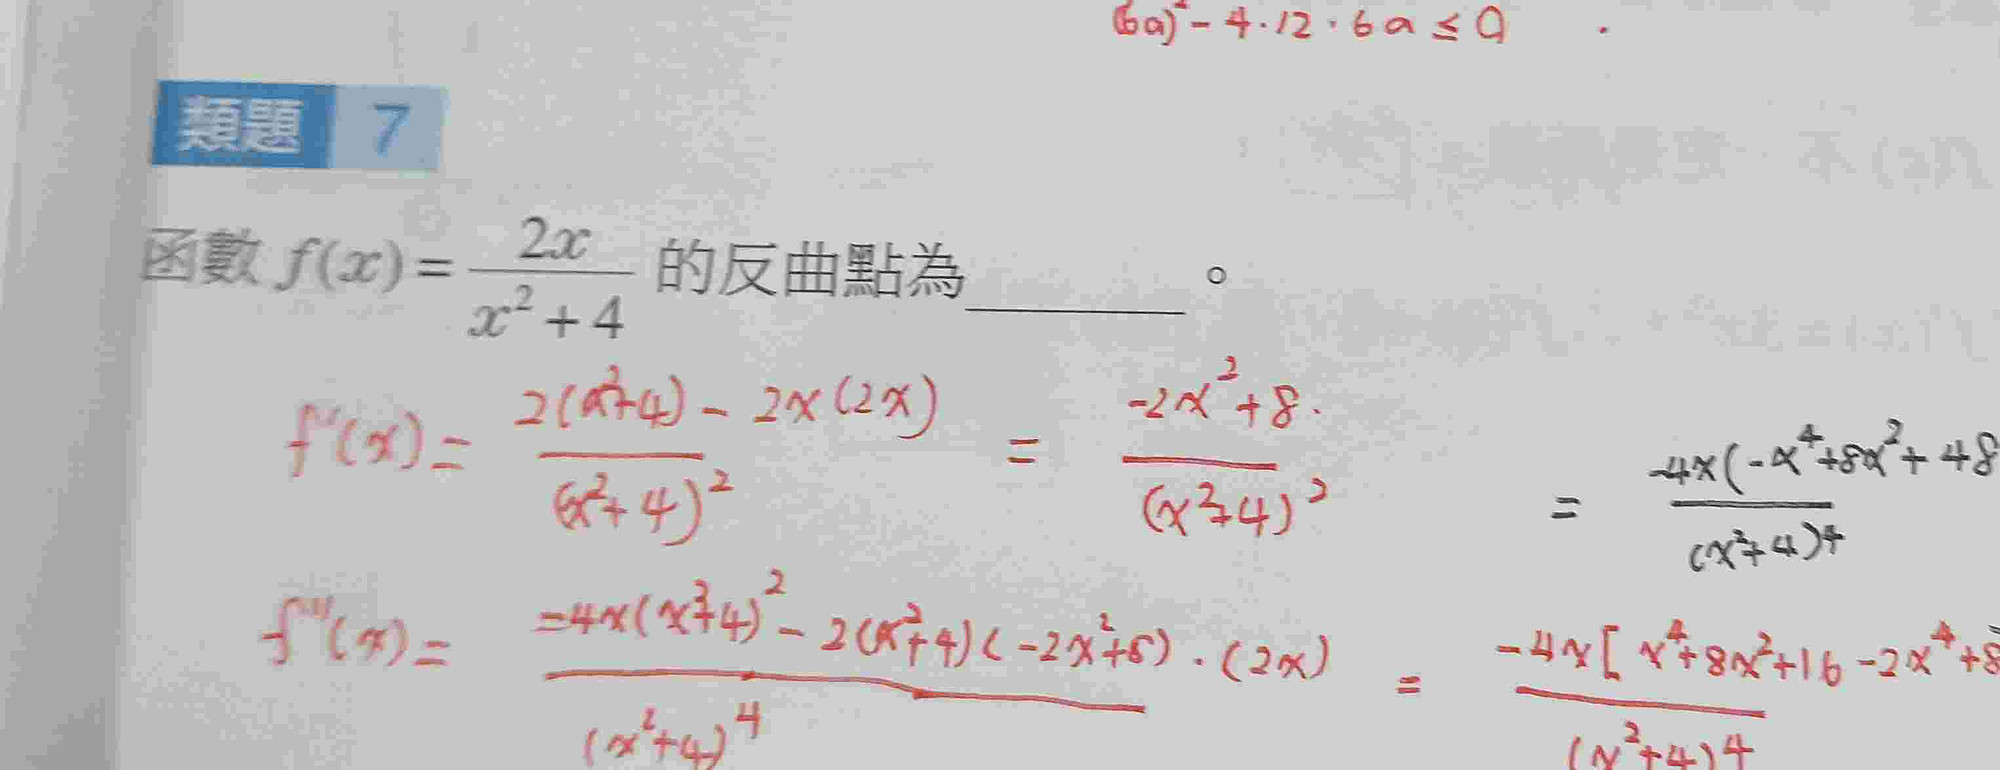 (6a)² - 4·12·6a ≤ 0
類題 7
函數 f(x) = 2x / (x² + 4) 的反曲點為______。
f'(x) = 2(x²+4) - 2x(2x) / (x²+4)² = -2x²+8 / (x²+4)²
= -4x(-x⁴+8x²+48 / (x²+4)⁴
f''(x) = -4x(x²+4)² - 2(x²+4)(-2x²+8)·(2x) / (x²+4)⁴ = -4x[x⁴+8x²+16-2x⁴+8 / (x²+4)⁴